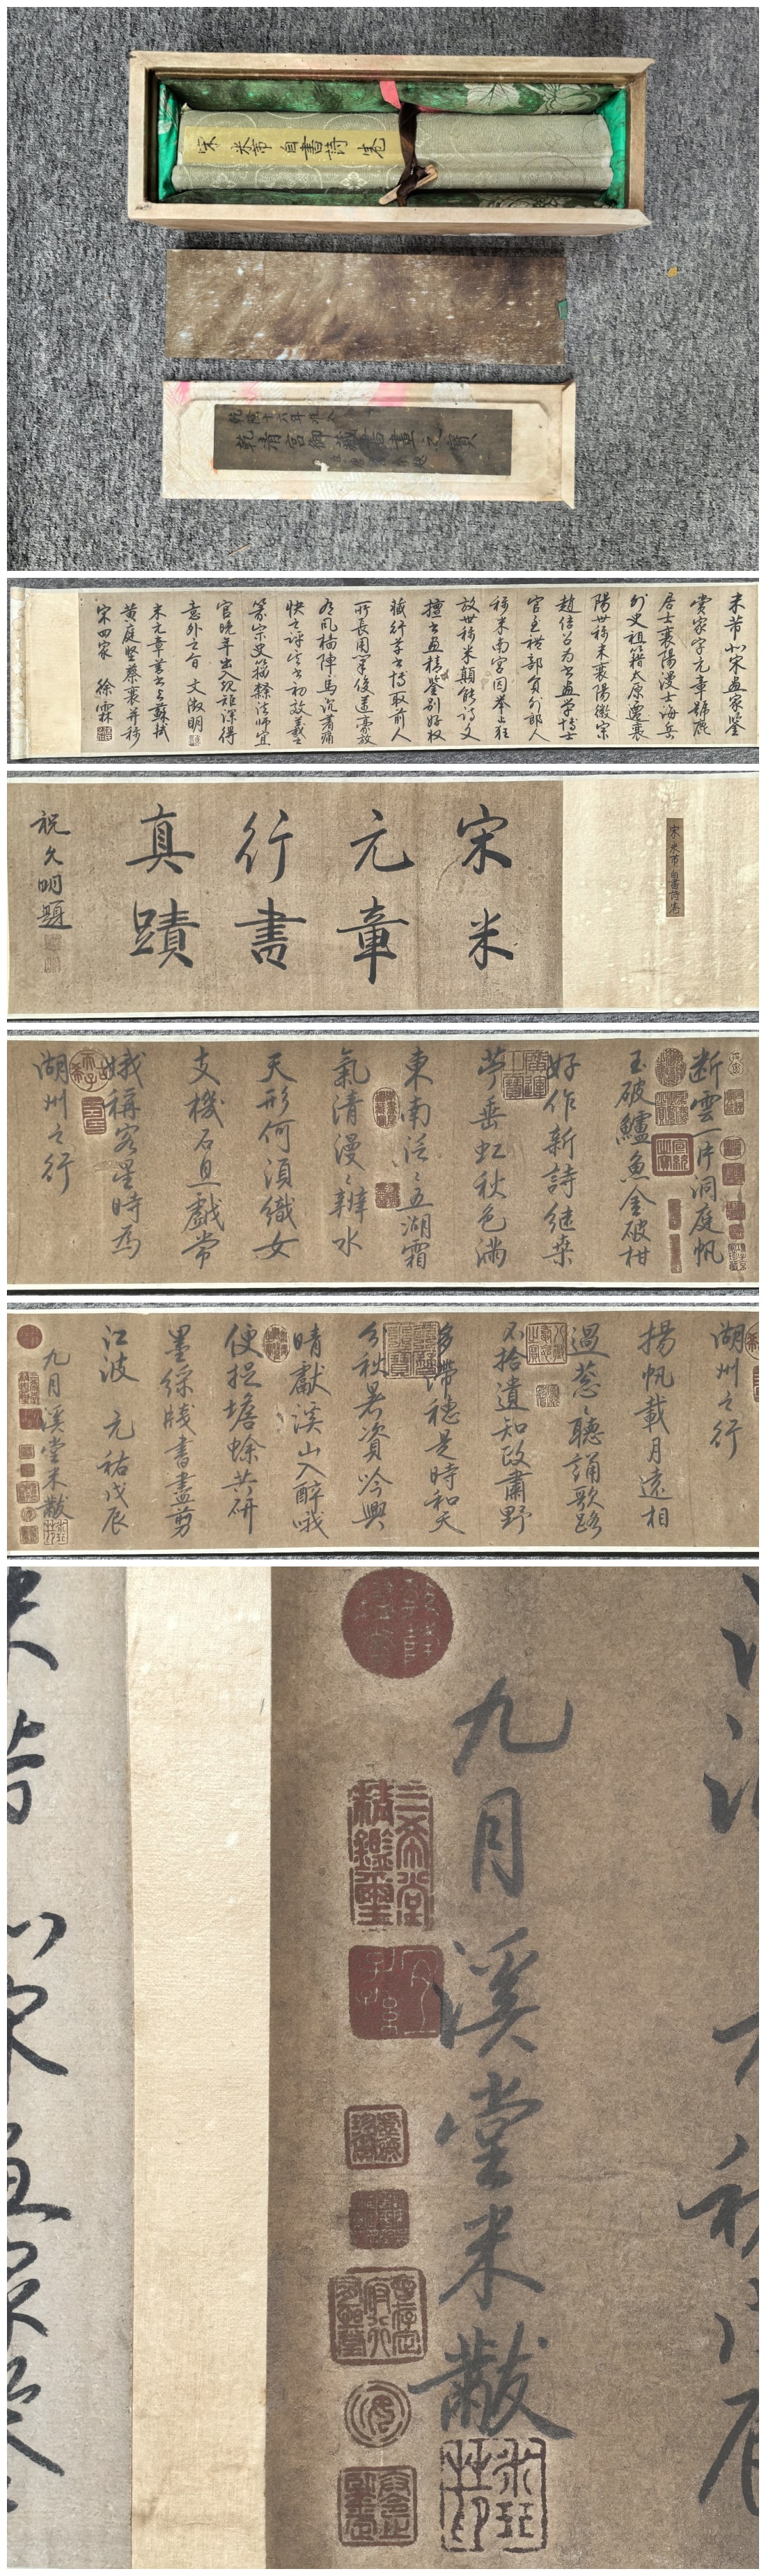 宋米芾自書詩卷
乾隆十六年
乾清宮御藏書畫之寶
米芾北宋畫家鑒
賞家字元章號鹿
居士襄陽漫士海岳
外史祖籍太原遷襄
陽世稱米襄陽徽宗
趙佶召為書畫學博士
官至禮部員外郎人
稱米南宮因舉止狂
放世稱米顛能詩文
擅書畫精鑒別好收
藏行草書博取前人
所長用筆俊邁豪放
有風檣陣馬沉著痛
快之評書初效羲之
篆宗史籀隸法師宜
官晚年出入規矩深得
意外之旨 文徵明
米元章善書與蘇軾
黃庭堅蔡襄并稱
宋四家 徐霖
宋米芾自書詩卷
宋米
元章
行書
真蹟
祝允明題
断雲一片洞庭帆
玉破鱸魚金破柑
好作新詩継桒
苧垂虹秋色滿
東南泛泛五湖霜
氣清漫漫辨水
天形何須織女
支機石且戲常
娥稱客星時為
湖州之行
湖州之行
揚帆載月遠相
過蔥蔥聽誦歌路
不拾遺知政肅野
多滯穗是時和天
分秋暑資吟興
晴獻溪山入醉哦
便捉蟾蜍共研
墨綵牋書盡剪
江波 元祐戊辰
九月溪堂米黻
九月溪堂米黻
三希堂精鑑璽